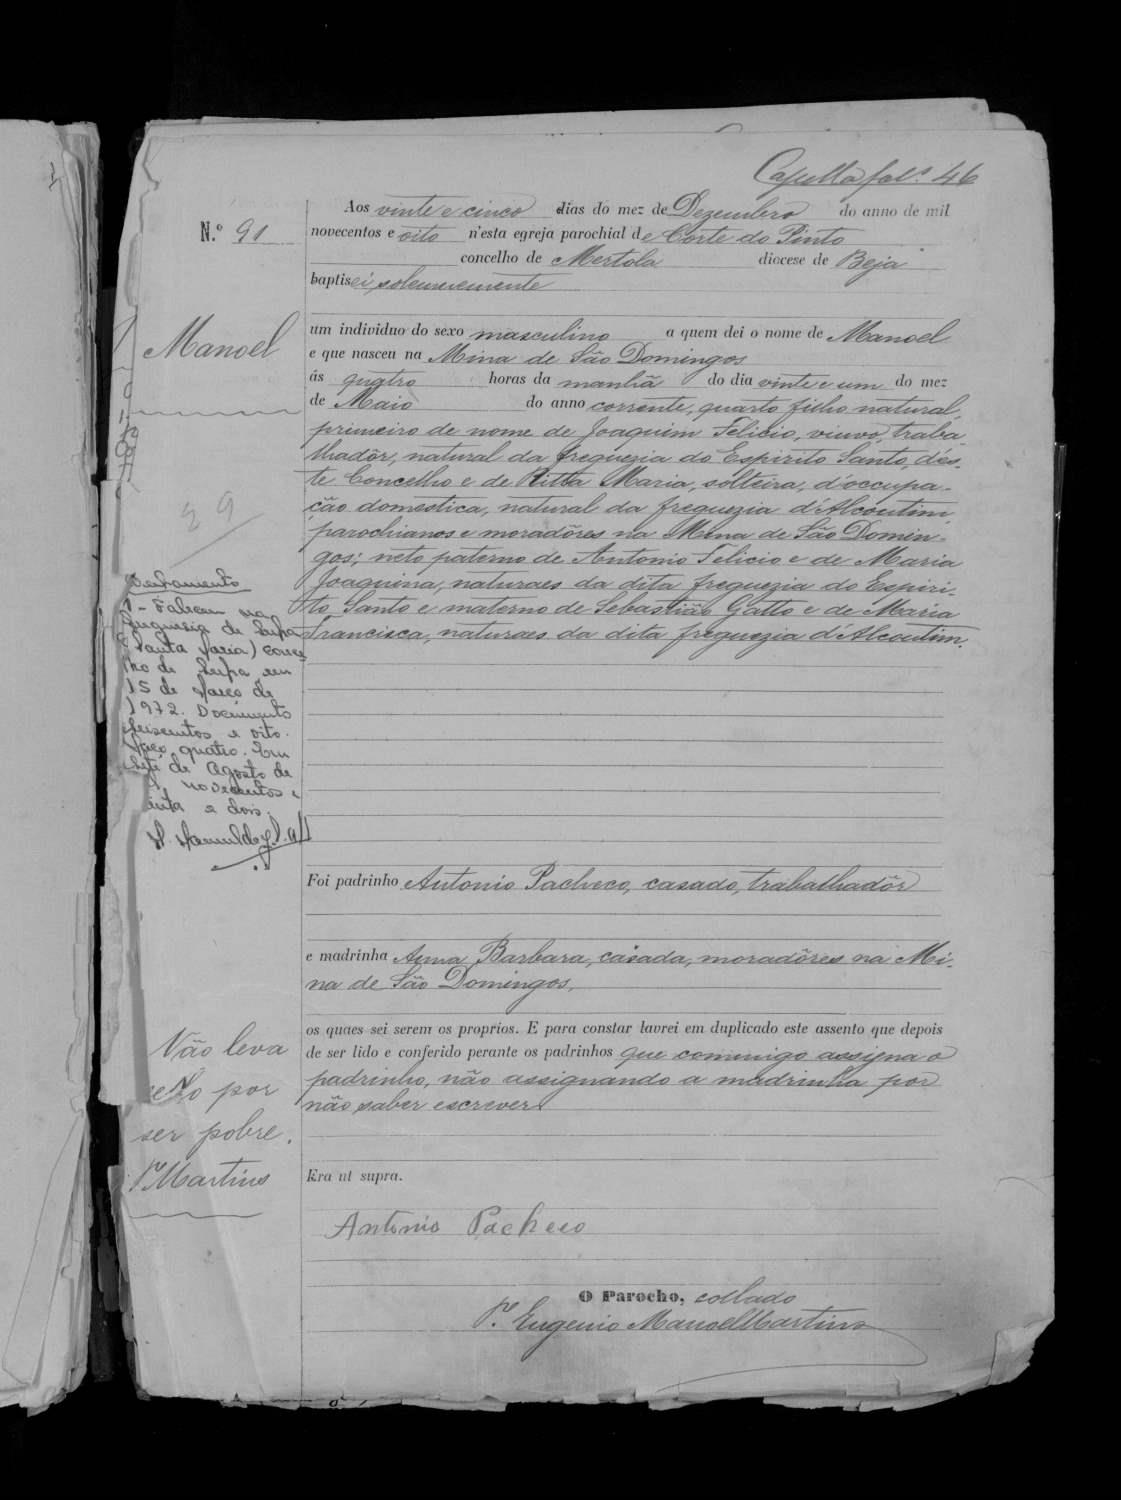 Capella fol. 46
Aos vinte e cinco dias do mez de Dezembro do anno de mil
N.º 91
novecentos e oito n'esta egreja parochial de Corte do Pinto
concelho de Mertola diocese de Beja
baptisei solemnemente
Manoel
um individuo do sexo masculino a quem dei o nome de Manoel
e que nasceu na Mina de São Domingos
ás quatro horas da manhã do dia vinte e um do mez
de Maio do anno corrente, quarto filho natural,
primeiro de nome de Joaquim Felicio, viuvo, traba-
lhadôr, natural da freguezia do Espirito Santo, d'és-
te Concelho e de Ritta Maria, solteira, d'occupa-
ção domestica, natural da freguezia d'Alcoutim,
parochianos e moradôres na Mina de São Domin-
gos; neto paterno de Antonio Felicio e de Maria
Joaquina, naturaes da dita freguezia do Espiri-
to Santo e materno de Sebastião Gatto e de Maria
Francisca, naturaes da dita freguezia d'Alcoutim.
29
Averbamento
1 - Faleceu na
freguesia de Serpa
(Santa Maria) conce
lho de Serpa em
15 de Março de
1972. Documento
seiscentos e oito.
Maço quatro. Em
sete de Agosto de
novecentos e
enta e dois.
Foi padrinho Antonio Pacheco, casado, trabalhadôr
e madrinha Anna Barbara, casada, moradôres na Mi-
na de São Domingos,
os quaes sei serem os proprios. E para constar lavrei em duplicado este assento que depois
de ser lido e conferido perante os padrinhos que commigo assigna o
padrinho, não assignando a madrinha por
não saber escrever.
Não leva
sello por
ser pobre.
P.e Martins
Era ut supra.
Antonio Pacheco
O Parocho, collado
P.e Eugenio Manoel Martins